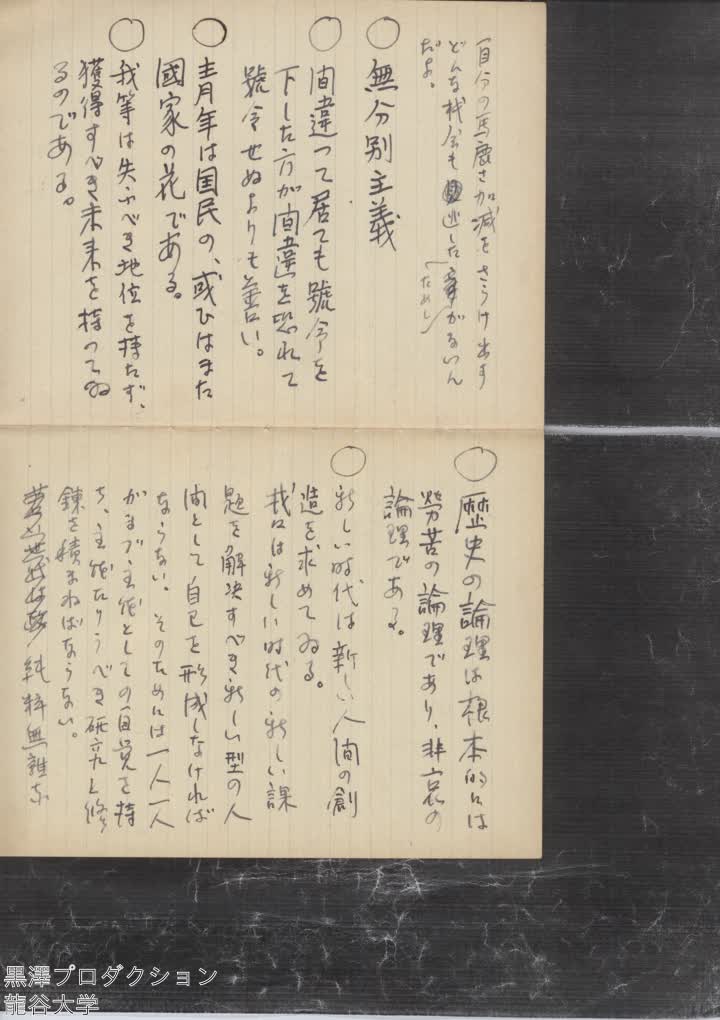 自分の馬鹿さ加減をさらけ出す
どんな機会も逃した
(ためし)
がないん
だよ。
○無分別主義
○間違つて居ても號令を
下した方が間違を恐れて
號令せぬよりも善い。
○青年は国民の、或ひはまた
國家の花である。
○我等は失ふべき地位を持たず、
獲得すべき未来を持ってゐ
るのである。
○歴史の論理は根本的には
勞苦の論理であり、悲哀の
論理である。
○新しい時代は新しい人間の創
造を求めてゐる。
我々は新しい時代の新しい課
題を解決すべき新しい型の人
間として自己を形成しなければ
ならない。そのためには一人一人
がまづ主役としての自覚を持
ち、主役たりうべき研究と修
錬を積まねばならない。
純粋無雑な
黒澤プロダクション
龍谷大学